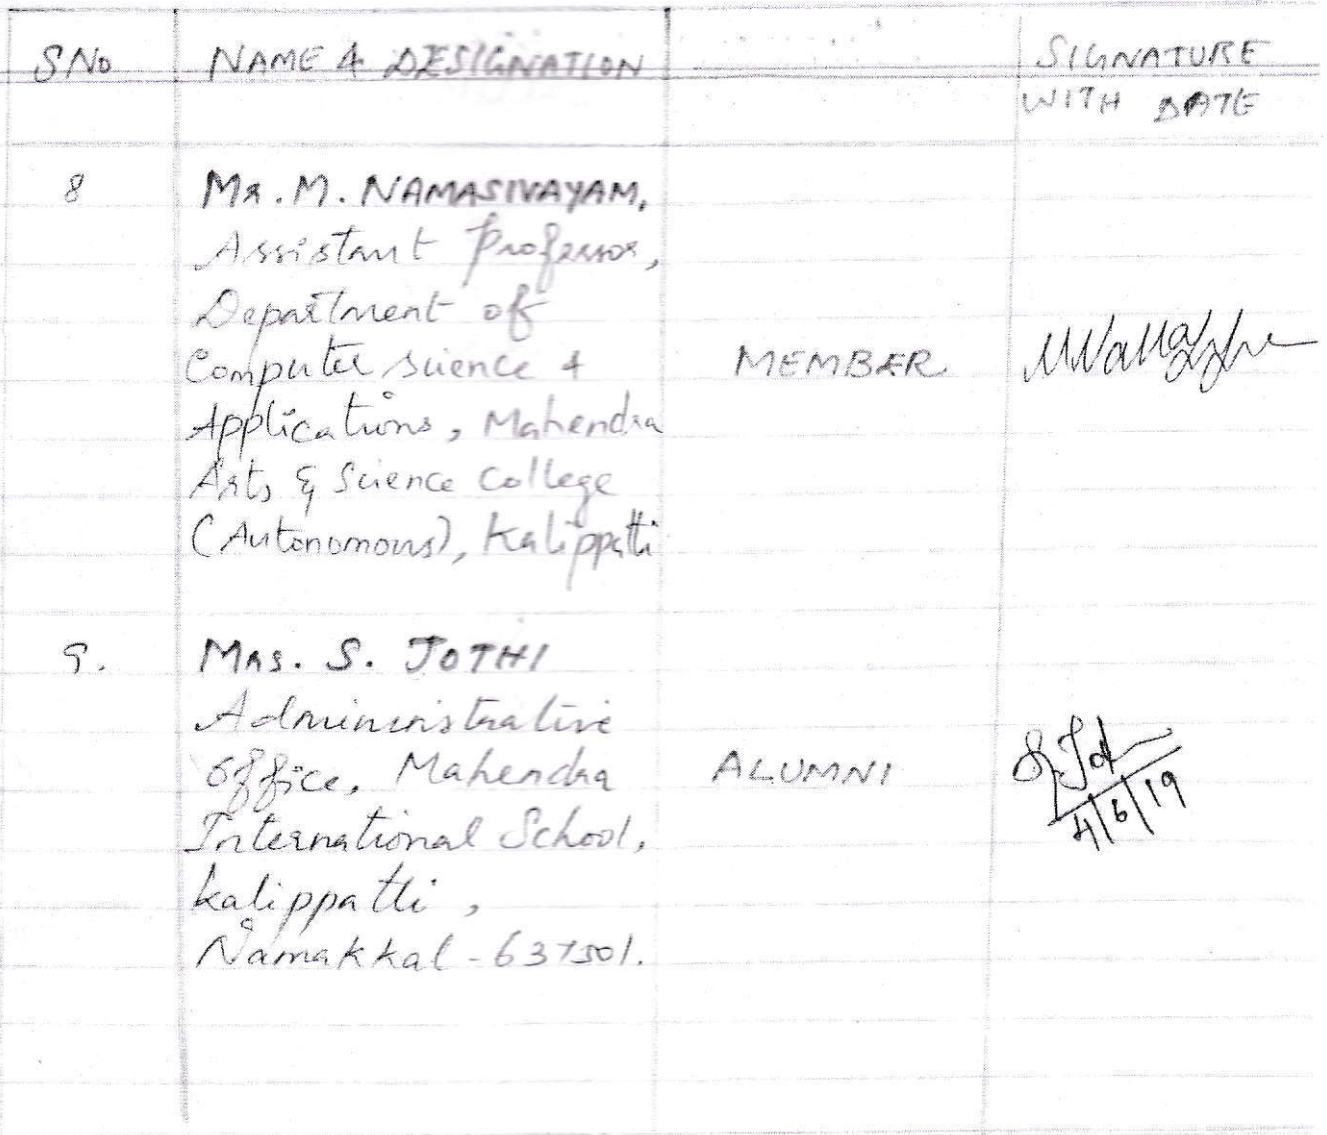 SNo NAME & DESIGNATION SIGNATURE
WITH DATE
8 Mr. M. NAMASIVAYAM,
Assistant Professor,
Department of
Computer Science & MEMBER
Applications, Mahendra
Arts & Science College
(Autonomous), Kalippatti
9. Mrs. S. JOTHI
Administrative
Office, Mahendra ALUMNI S. Jot
International School, 4/6/19
Kalippatti,
Namakkal - 637501.